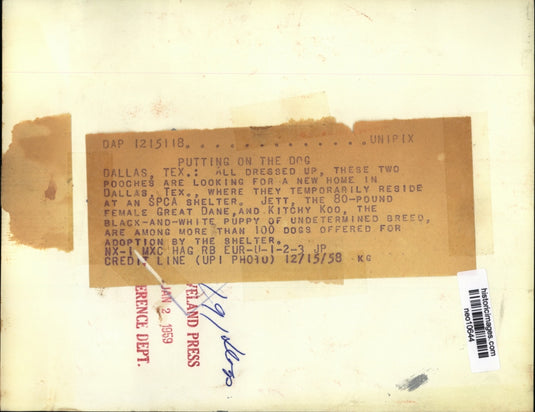 DAP 1215118. . . . . . . . . . . . . . .UNIPIX
PUTTING ON THE DOG
DALLAS, TEX.: ALL DRESSED UP, THESE TWO
POOCHES ARE LOOKING FOR A NEW HOME IN
DALLAS, TEX., WHERE THEY TEMPORARILY RESIDE
AT AN SPCA SHELTER. JETT, THE 80-POUND
FEMALE GREAT DANE,AND KITCHY KOO, THE
BLACK-AND-WHITE PUPPY OF UNDETERMINED BREED,
ARE AMONG MORE THAN 100 DOGS OFFERED FOR
ADOPTION BY THE SHELTER.
NX-1 MXC HAG RB EUR-U-1-2-3 JP
CREDIT LINE (UPI PHOTO) 12/15/58 KG
ELAND PRESS
JAN 2 1959
ERENCE DEPT.
historicimages.com
neo10644